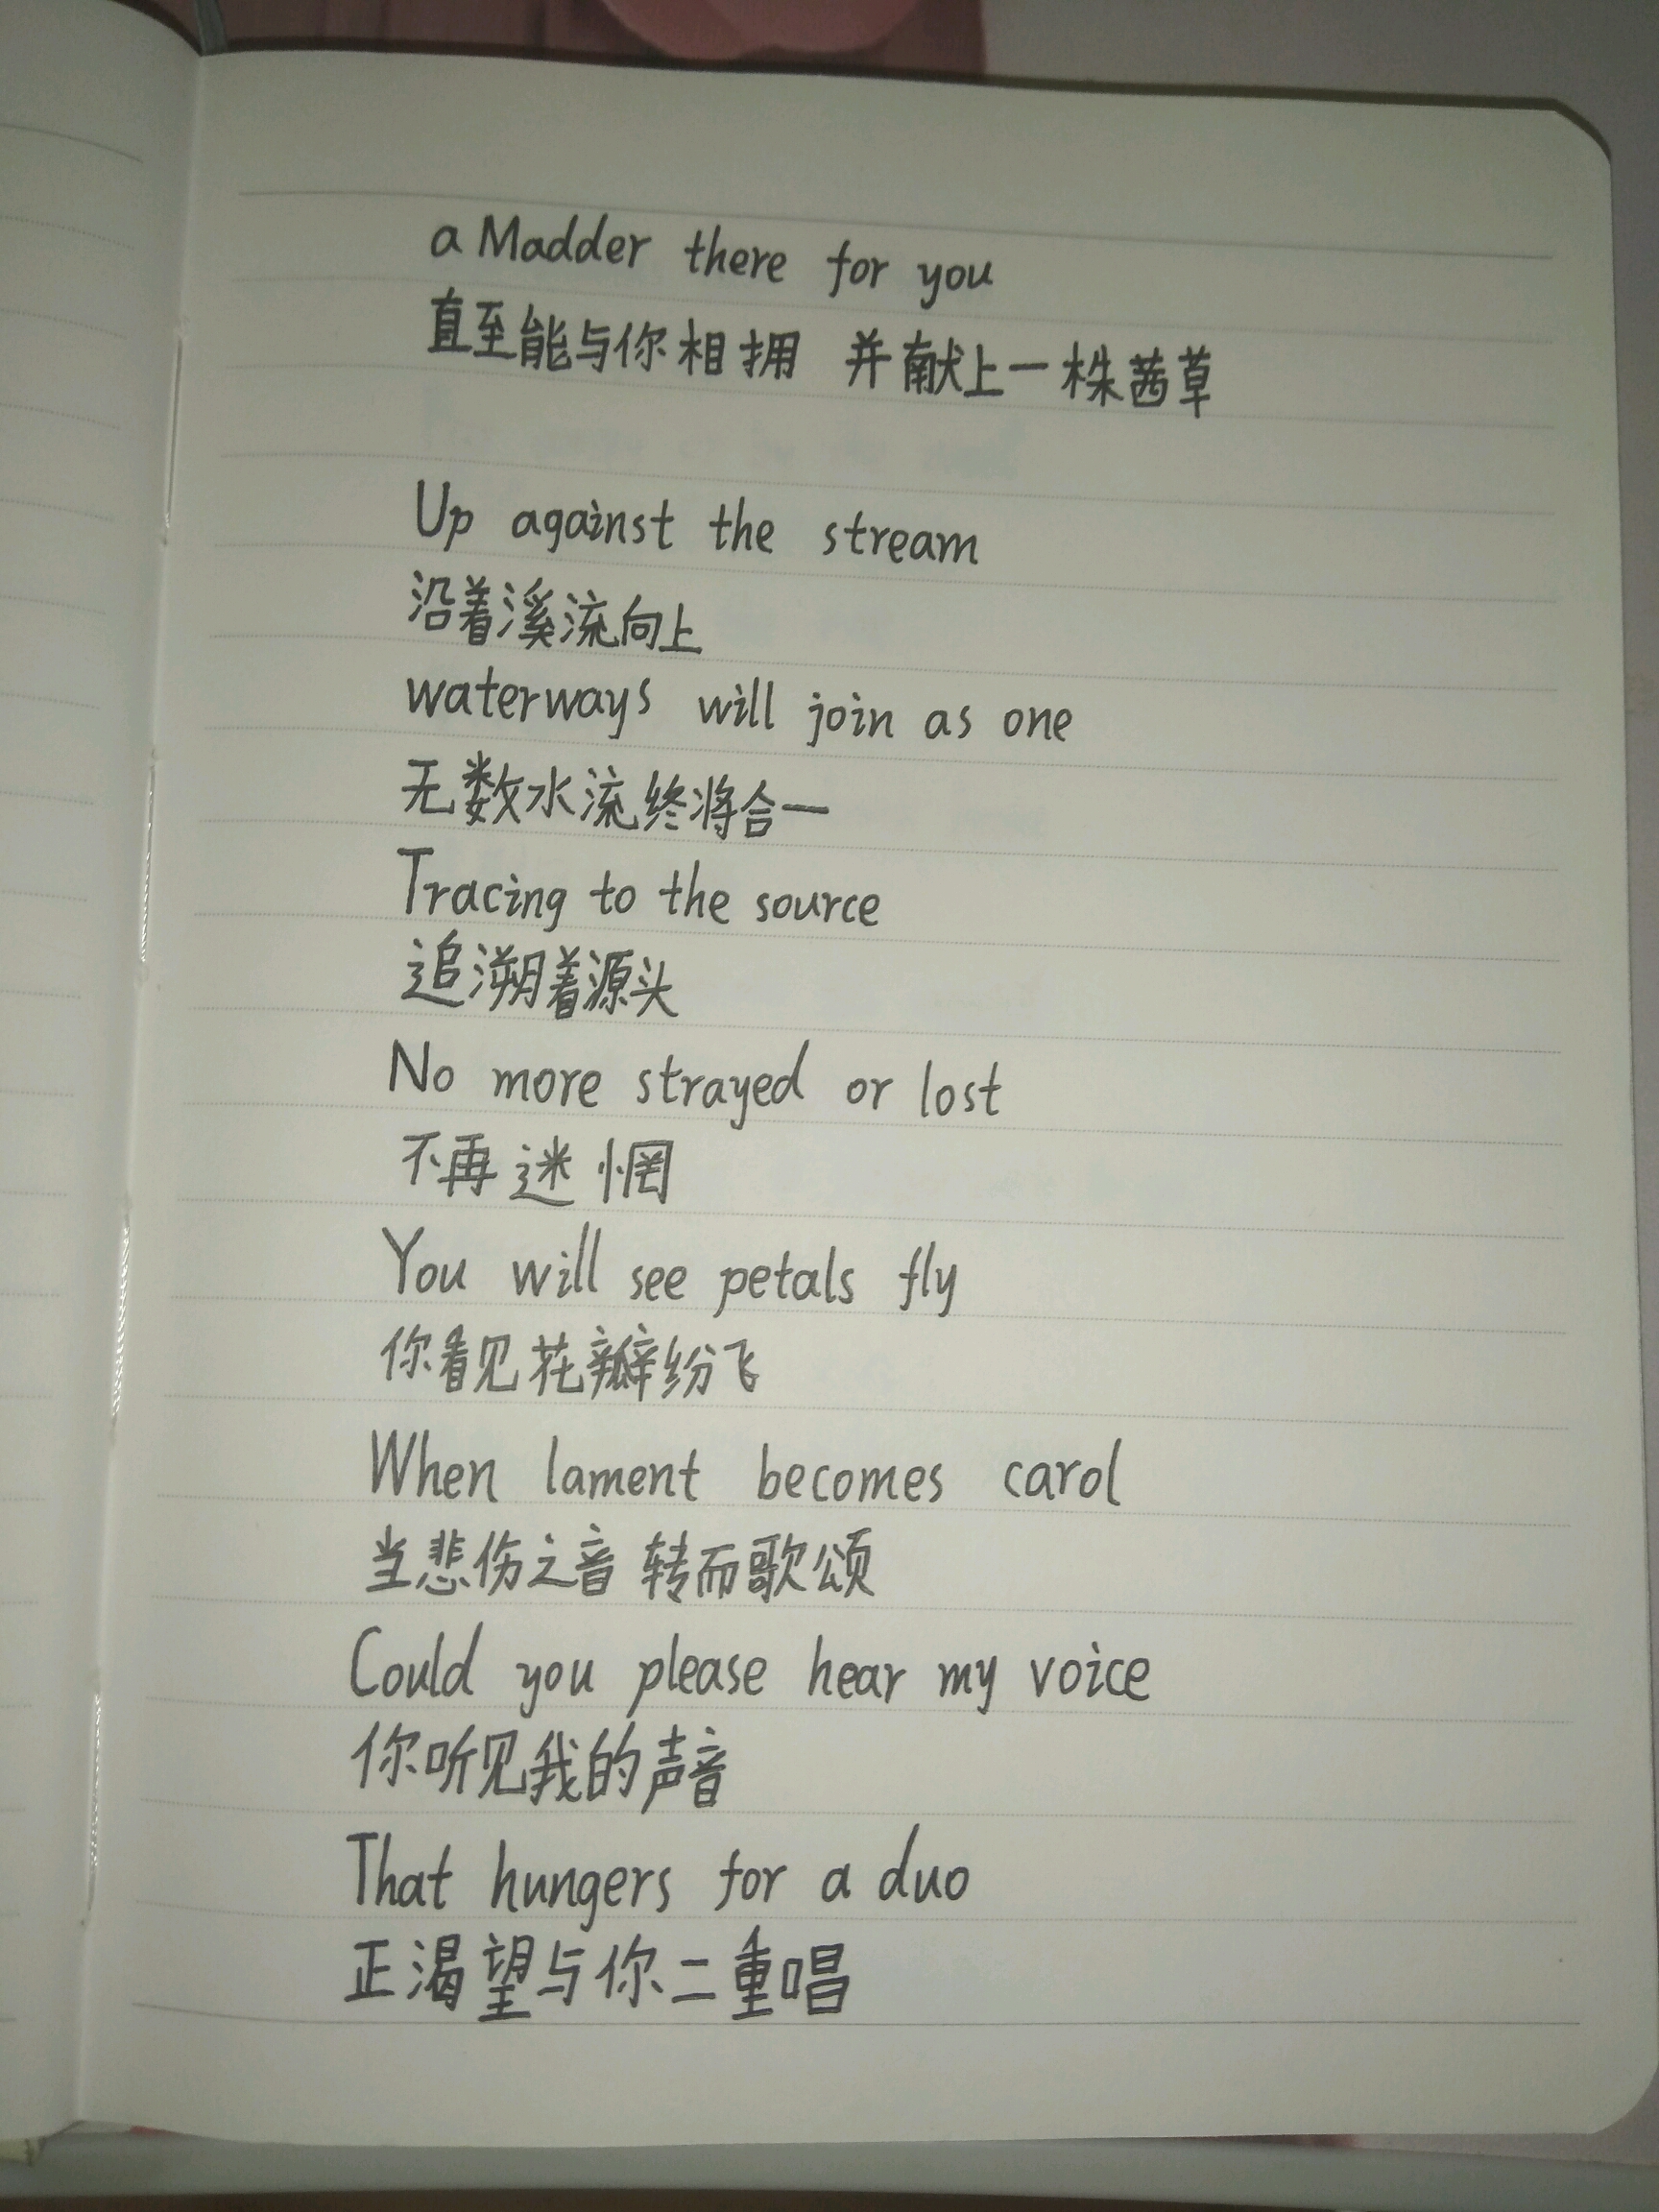 a Madder there for you
直至能与你相拥 并献上一株茜草
Up against the stream
沿着溪流向上
waterways will join as one
无数水流终将合一
Tracing to the source
追溯着源头
No more strayed or lost
不再迷惘
You will see petals fly
你看见花瓣纷飞
When lament becomes carol
当悲伤之音 转而歌颂
Could you please hear my voice
你听见我的声音
That hungers for a duo
正渴望与你二重唱